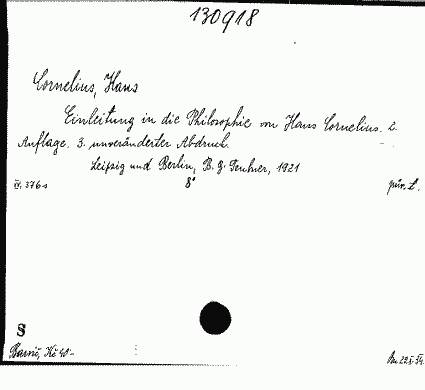 130918
Cornelius, Hans
Einleitung in die Philosophie von Hans Cornelius. 2.
Auflage. 3. unveränderter Abdruck.
Leipzig und Berlin, B. G. Teubner, 1921
IV. 376 s 8° pův. L.
S
Kč 40-